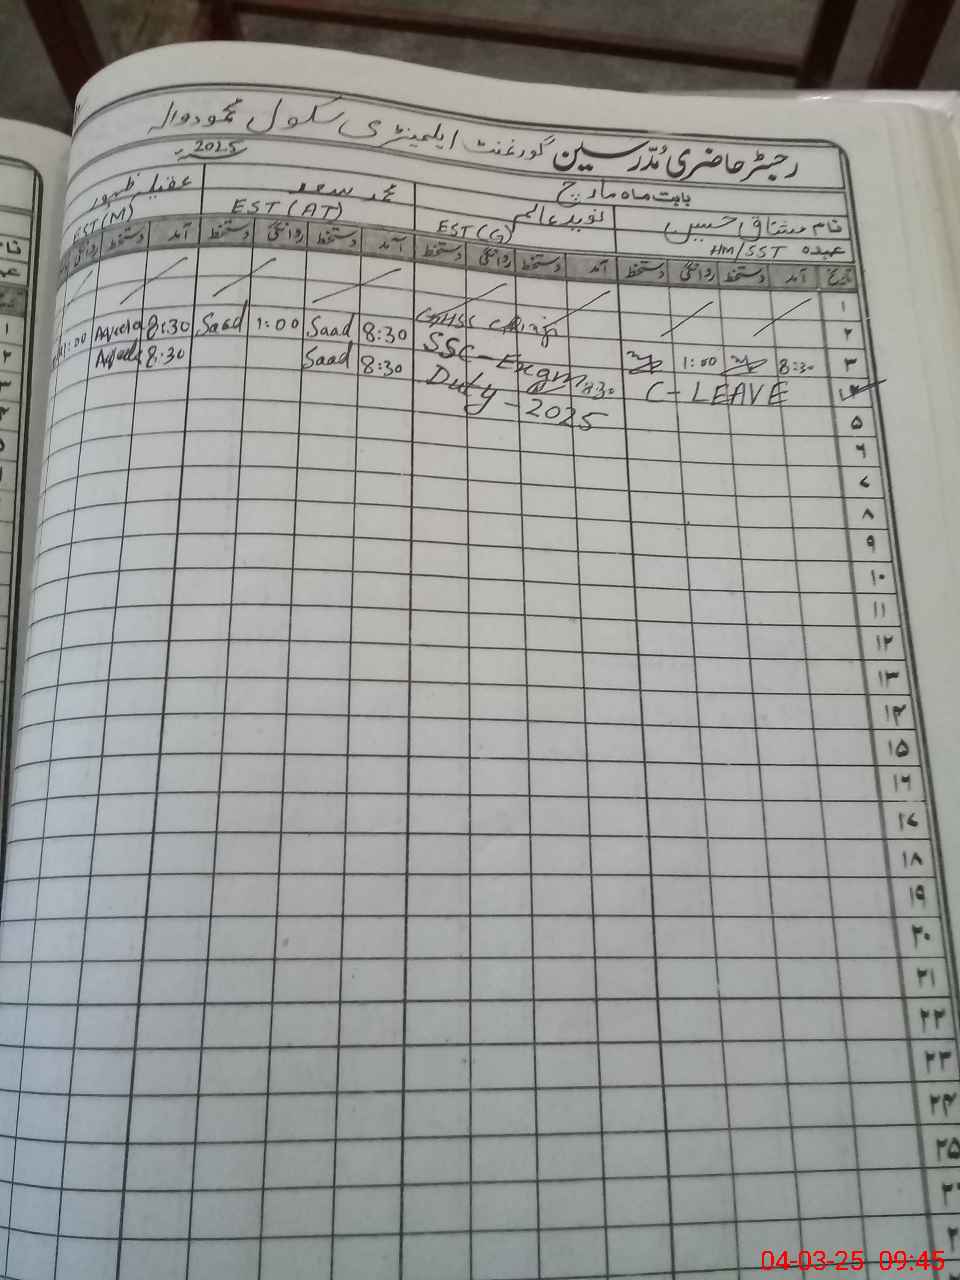 رجسٹر حاضری مُدّرسین گورنمنٹ ایلیمنٹری سکول محمودوالہ
بابت ماہ مارچ 2025ء
نام مشتاق حسین نوید عالم محمد سعد عقیلہ ظہور
عہدہ HM/SST EST(G) EST(AT) EST(M)
تاریخ آمد دستخط روانگی دستخط آمد دستخط روانگی دستخط آمد دستخط روانگی دستخط آمد دستخط روانگی
۱
۲
۳ 8:30 1:00 GHSS 8:30 Saad 1:00 Saad 8:30 Aqeela 1:00
۴ C-LEAVE SSC-Exam 8:30 Duty-2025 8:30 Saad 8:30 Aqeela
۵
۶
۷
۸
۹
۱۰
۱۱
۱۲
۱۳
۱۴
۱۵
۱۶
۱۷
۱۸
۱۹
۲۰
۲۱
۲۲
۲۳
۲۴
۲۵
04-03-25 09:45